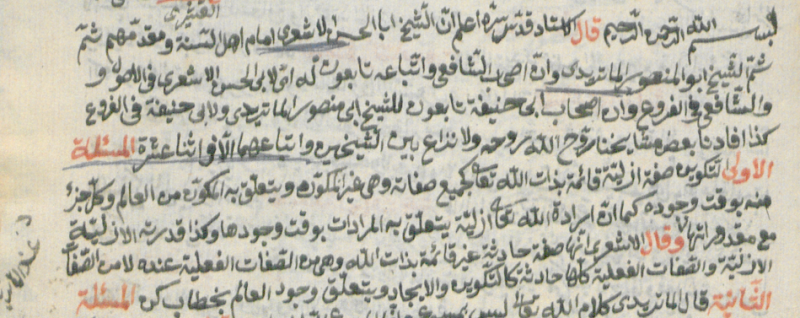 بسم الله الرحمن الرحيم قال الاستاد قدس سره اعلم ان الشيخ ابا الحسن الاشعرى امام اهل السنة ومقدمهم ثم
ثم الشيخ ابو المنصور الماتريدى وان اصحاب الشافعى واتباعه تابعون له اى لابى الحسن الاشعرى فى الاصول و
والشافعى فى الفروع وان اصحاب ابى حنيفة تابعون للشيخ ابى منصور الماتريدى ولابى حنيفة فى الفروع
كذا افاد بعض مشايخنا روح الله روحه ولا نزاع بين الشيخين واتباعهما الا فى اثنا عشرة المسئلة
الاولى التكوين صفة ازلية قائمة بذات الله تعالى كجميع صفاته وهى غير المكون ويتعلق به المكون من العالم وكل جزء
منه بوقت وجوده كما ان ارادة الله تعالى ازلية يتعلق به المرادات بوقت وجودها وكذا قدرته الازلية
مع مقدوراتها وقال الاشعرى انها صفة حادثة غير قائمة بذات الله وهى من الصفات الفعلية عنده لا من الصفات
الازلية والصفات الفعلية كلها حادثة كالتكوين والايجاد ويتعلق وجود العالم بخطاب كن المسئلة
الثانية قال الماتريدى كلام الله تعالى ليس بمسموع